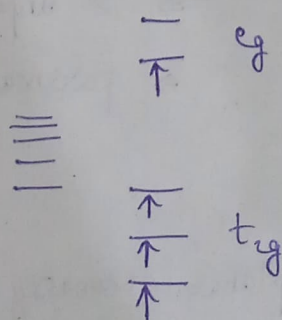 eg
t₂g